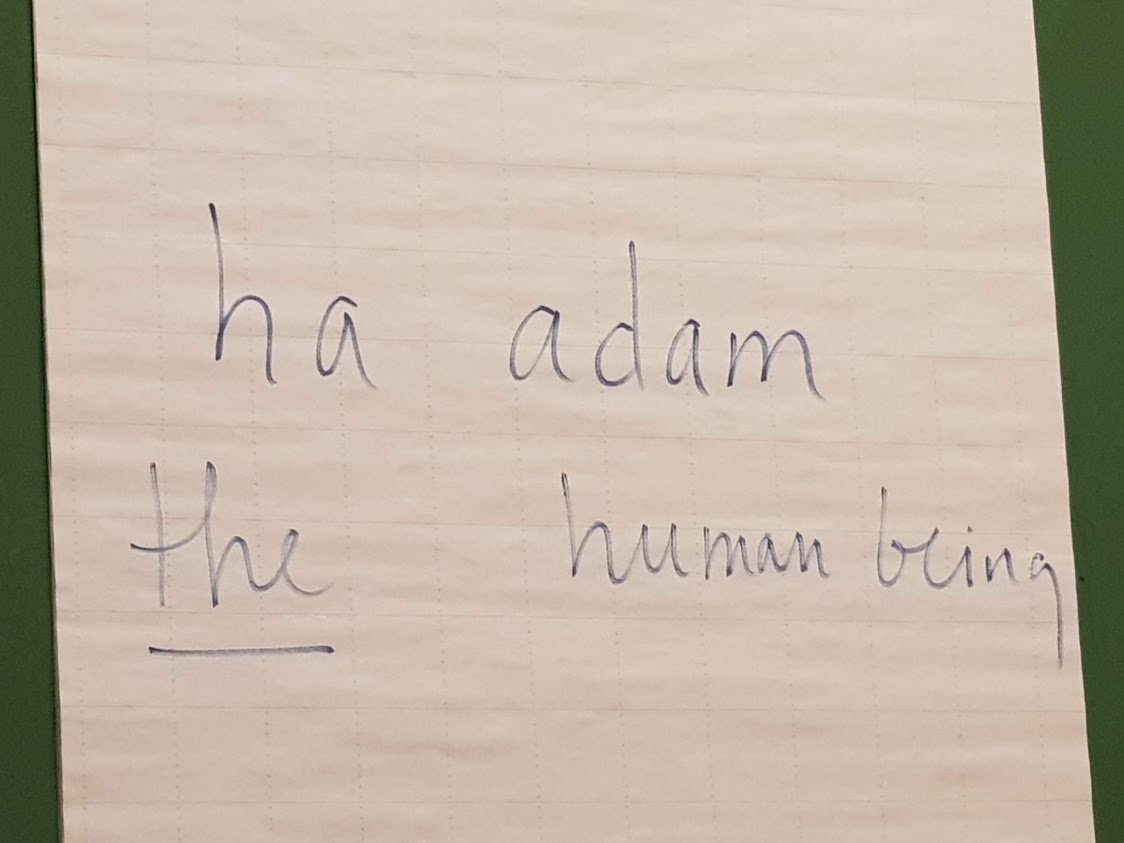 ha adam
the human being